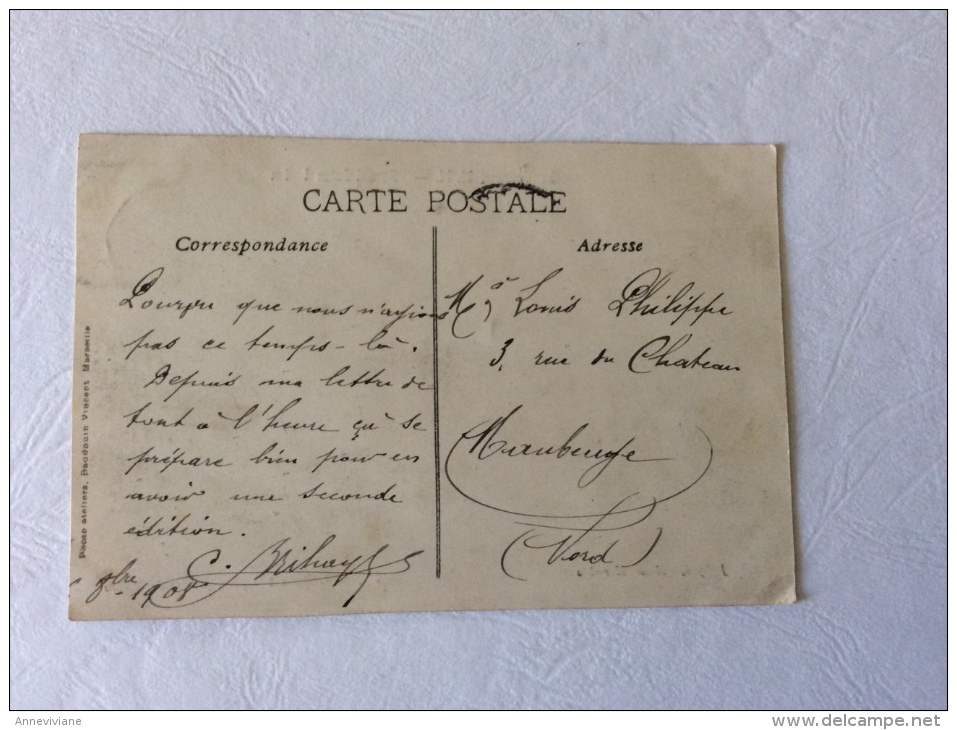 CARTE POSTALE
Correspondance
Pourvu que nous n'ayions
pas ce temps-là.
Depuis ma lettre de
tout à l'heure çà se
prépare bien pour en
avoir une seconde
édition.
C.
1908
Adresse
Louis Philippe
3, rue du Chateau
Maubeuge
(Nord)
ateliers, Baudouin Vincent Marseille
Anneviviane
www.delcampe.net